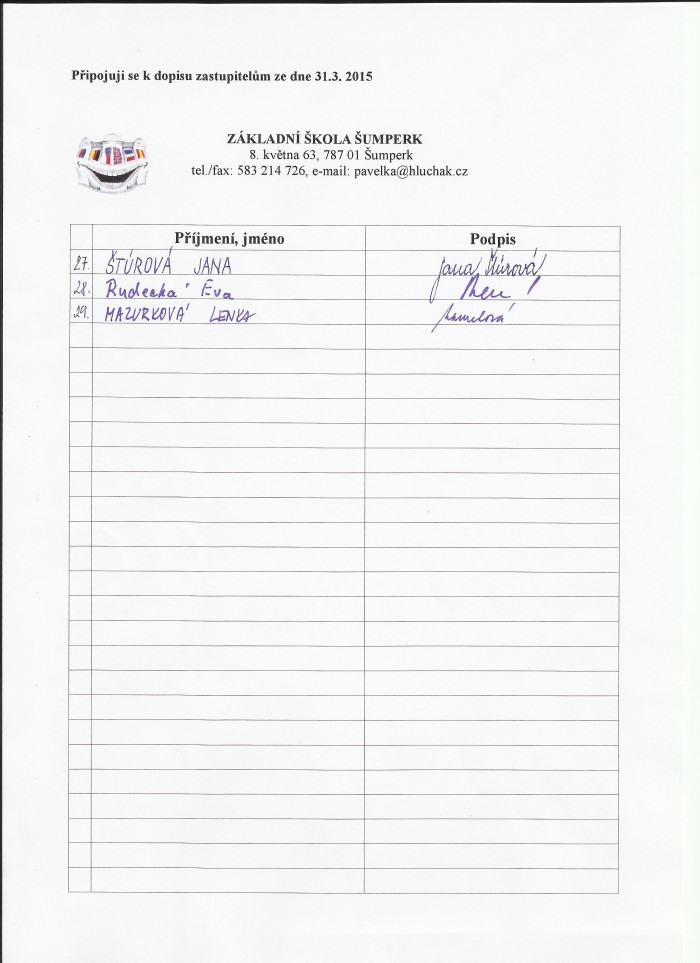 Připojuji se k dopisu zastupitelům ze dne 31.3. 2015
ZÁKLADNÍ ŠKOLA ŠUMPERK
8. května 63, 787 01 Šumperk
tel./fax: 583 214 726, e-mail: pavelka@hluchak.cz
Příjmení, jméno Podpis
27. ŠTÚROVÁ JANA Jana Štúrová
28. Rudecká Eva
29. MAZURKOVÁ LENKA